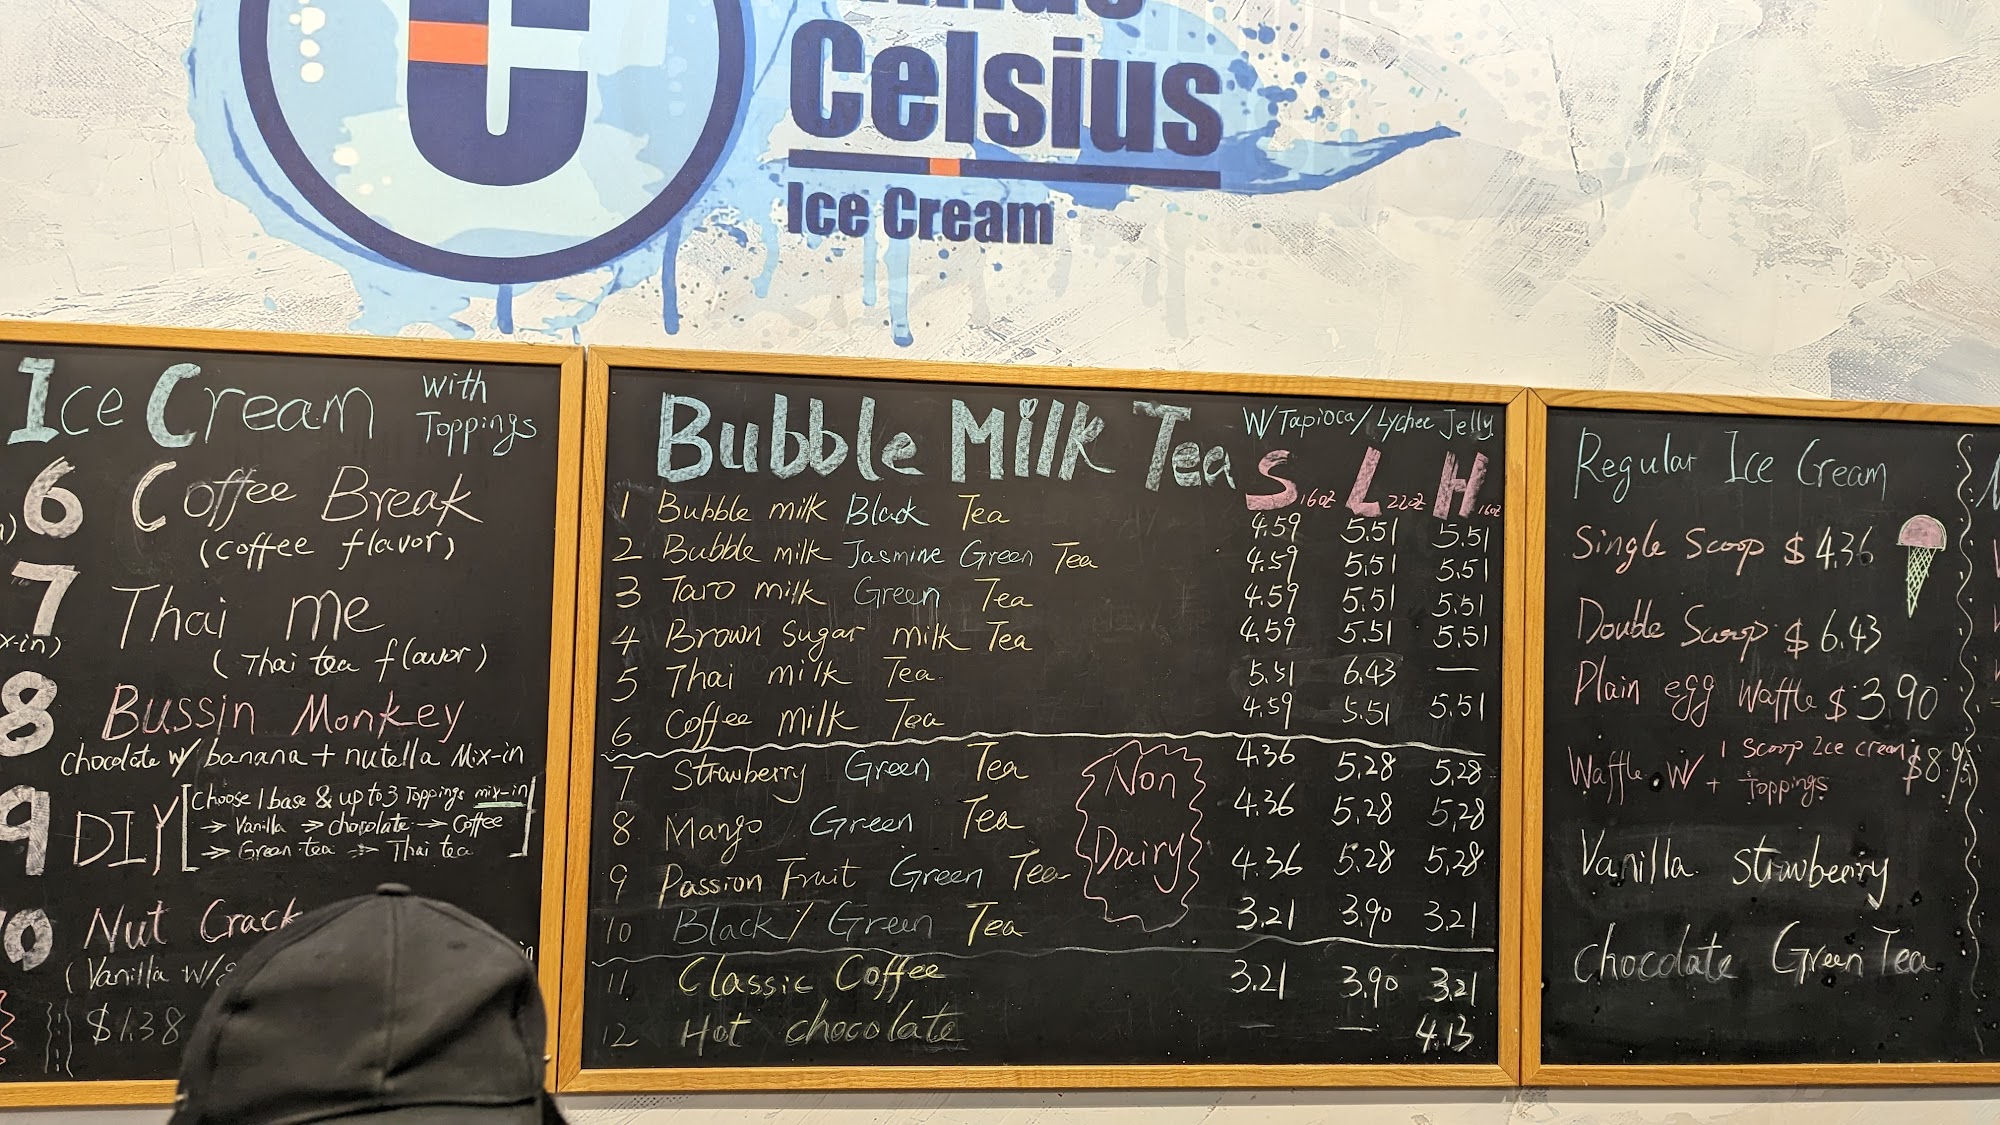 Celsius
Ice Cream
Ice Cream with Toppings
6 Coffee Break
(coffee flavor)
7 Thai me
(Thai tea flavor)
8 Bussin Monkey
chocolate w/ banana + nutella Mix-in
9 DIY [Choose 1 base & up to 3 Toppings mix-in
→ Vanilla → chocolate → Coffee
→ Green tea → Thai tea]
Nut Crack
(Vanilla w/
$1.38
Bubble Milk Tea W/Tapioca/Lychee Jelly
S 16oz L 22oz H 16oz
1 Bubble milk Black Tea 4.59 5.51 5.51
2 Bubble milk Jasmine Green Tea 4.59 5.51 5.51
3 Taro milk Green Tea 4.59 5.51 5.51
4 Brown Sugar milk Tea 4.59 5.51 5.51
5 Thai milk Tea 5.51 6.43 —
6 Coffee milk Tea 4.59 5.51 5.51
7 Strawberry Green Tea 4.36 5.28 5.28
8 Mango Green Tea 4.36 5.28 5.28
9 Passion Fruit Green Tea 4.36 5.28 5.28
10 Black/Green Tea 3.21 3.90 3.21
Non
Dairy
11 Classic Coffee 3.21 3.90 3.21
12 Hot chocolate — — 4.13
Regular Ice Cream
Single Scoop $4.36
Double Scoop $6.43
Plain egg Waffle $3.90
Waffle W/ 1 Scoop Ice cream + Toppings
Vanilla Strawberry
chocolate Green Tea